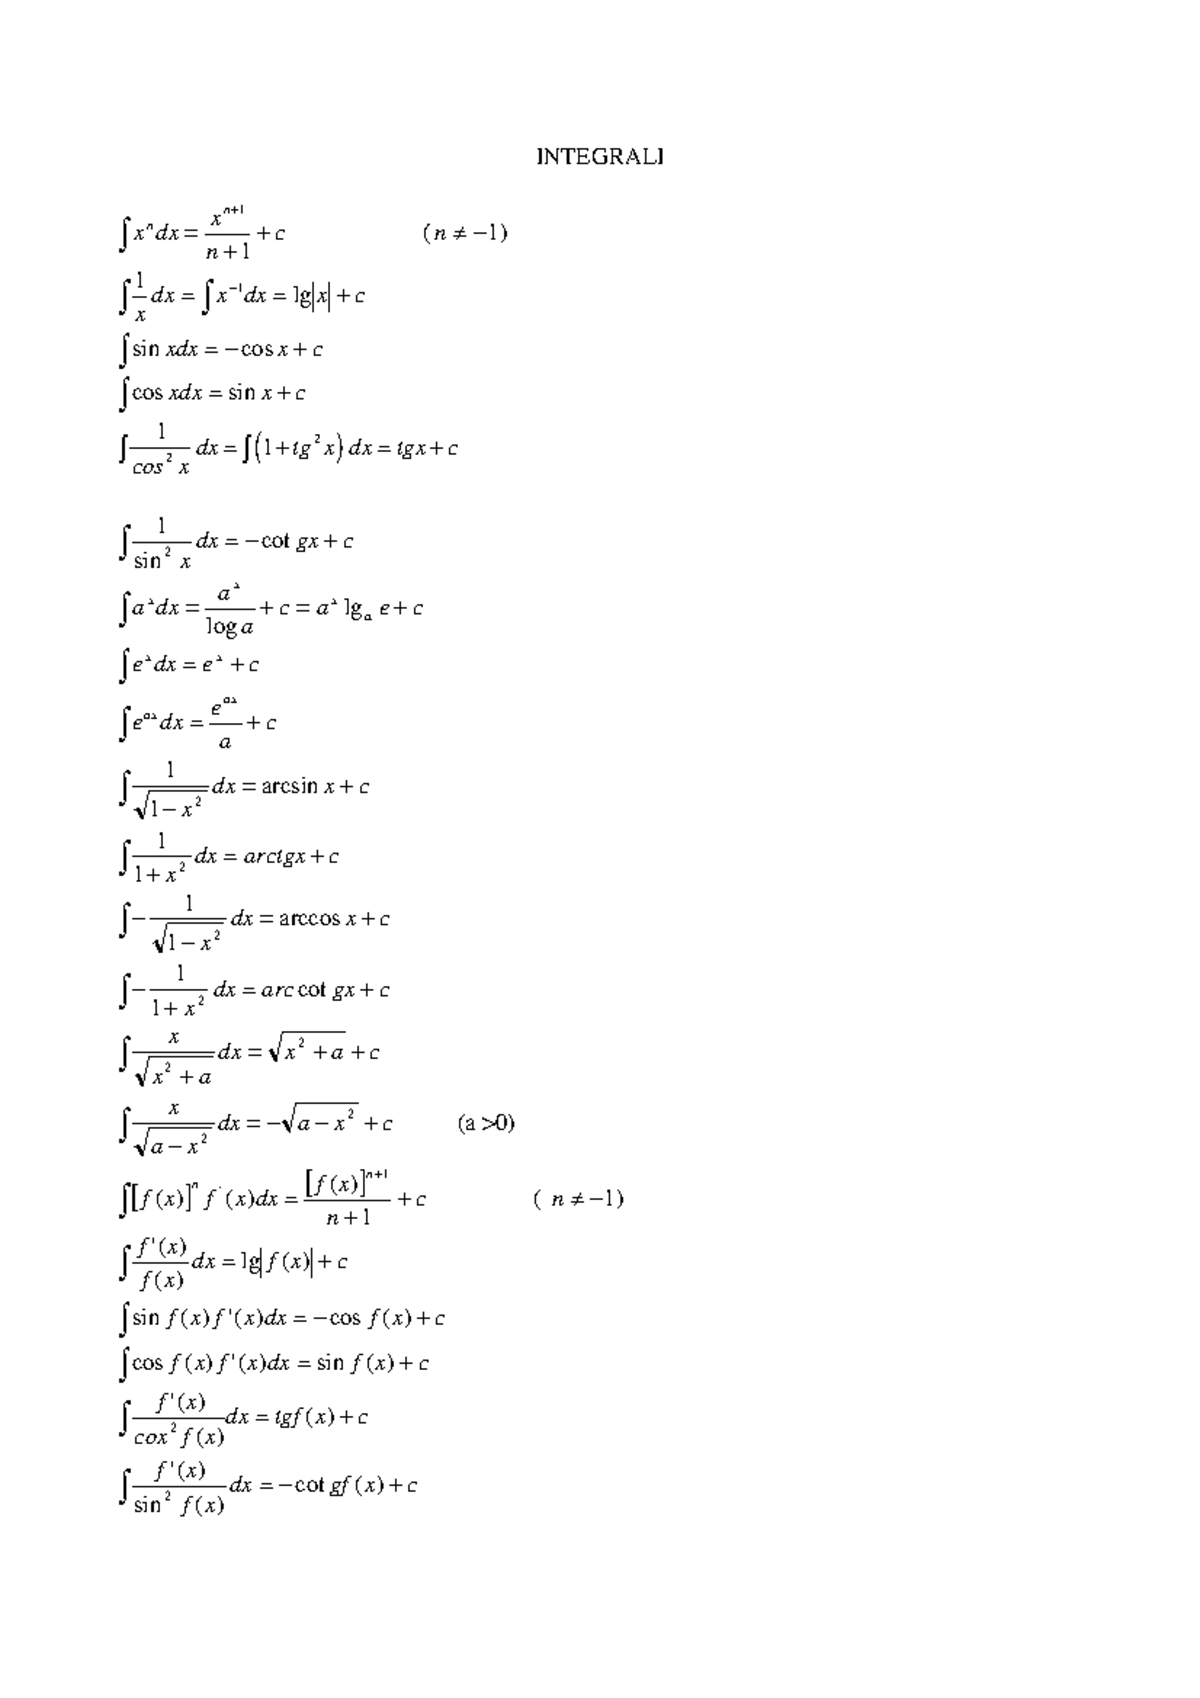 INTEGRALI
∫ xⁿ dx = xⁿ⁺¹/(n + 1) + c (n ≠ −1)
∫ 1/x dx = ∫ x⁻¹ dx = lg|x| + c
∫ sin xdx = −cos x + c
∫ cos xdx = sin x + c
∫ 1/cos² x dx = ∫ (1 + tg² x) dx = tgx + c
∫ 1/sin² x dx = −cot gx + c
∫ aˣ dx = aˣ/log a + c = aˣ lgₐ e + c
∫ eˣ dx = eˣ + c
∫ eᵃˣ dx = eᵃˣ/a + c
∫ 1/√(1 − x²) dx = arcsin x + c
∫ 1/(1 + x²) dx = arctgx + c
∫ − 1/√(1 − x²) dx = arccos x + c
∫ − 1/(1 + x²) dx = arc cot gx + c
∫ x/√(x² + a) dx = √(x² + a) + c
∫ x/√(a − x²) dx = −√(a − x²) + c (a >0)
∫ [f(x)]ⁿ f'(x)dx = [f(x)]ⁿ⁺¹/(n + 1) + c ( n ≠ −1)
∫ f'(x)/f(x) dx = lg|f(x)| + c
∫ sin f(x) f'(x)dx = −cos f(x) + c
∫ cos f(x) f'(x)dx = sin f(x) + c
∫ f'(x)/cox² f(x) dx = tgf(x) + c
∫ f'(x)/sin² f(x) dx = −cot gf(x) + c